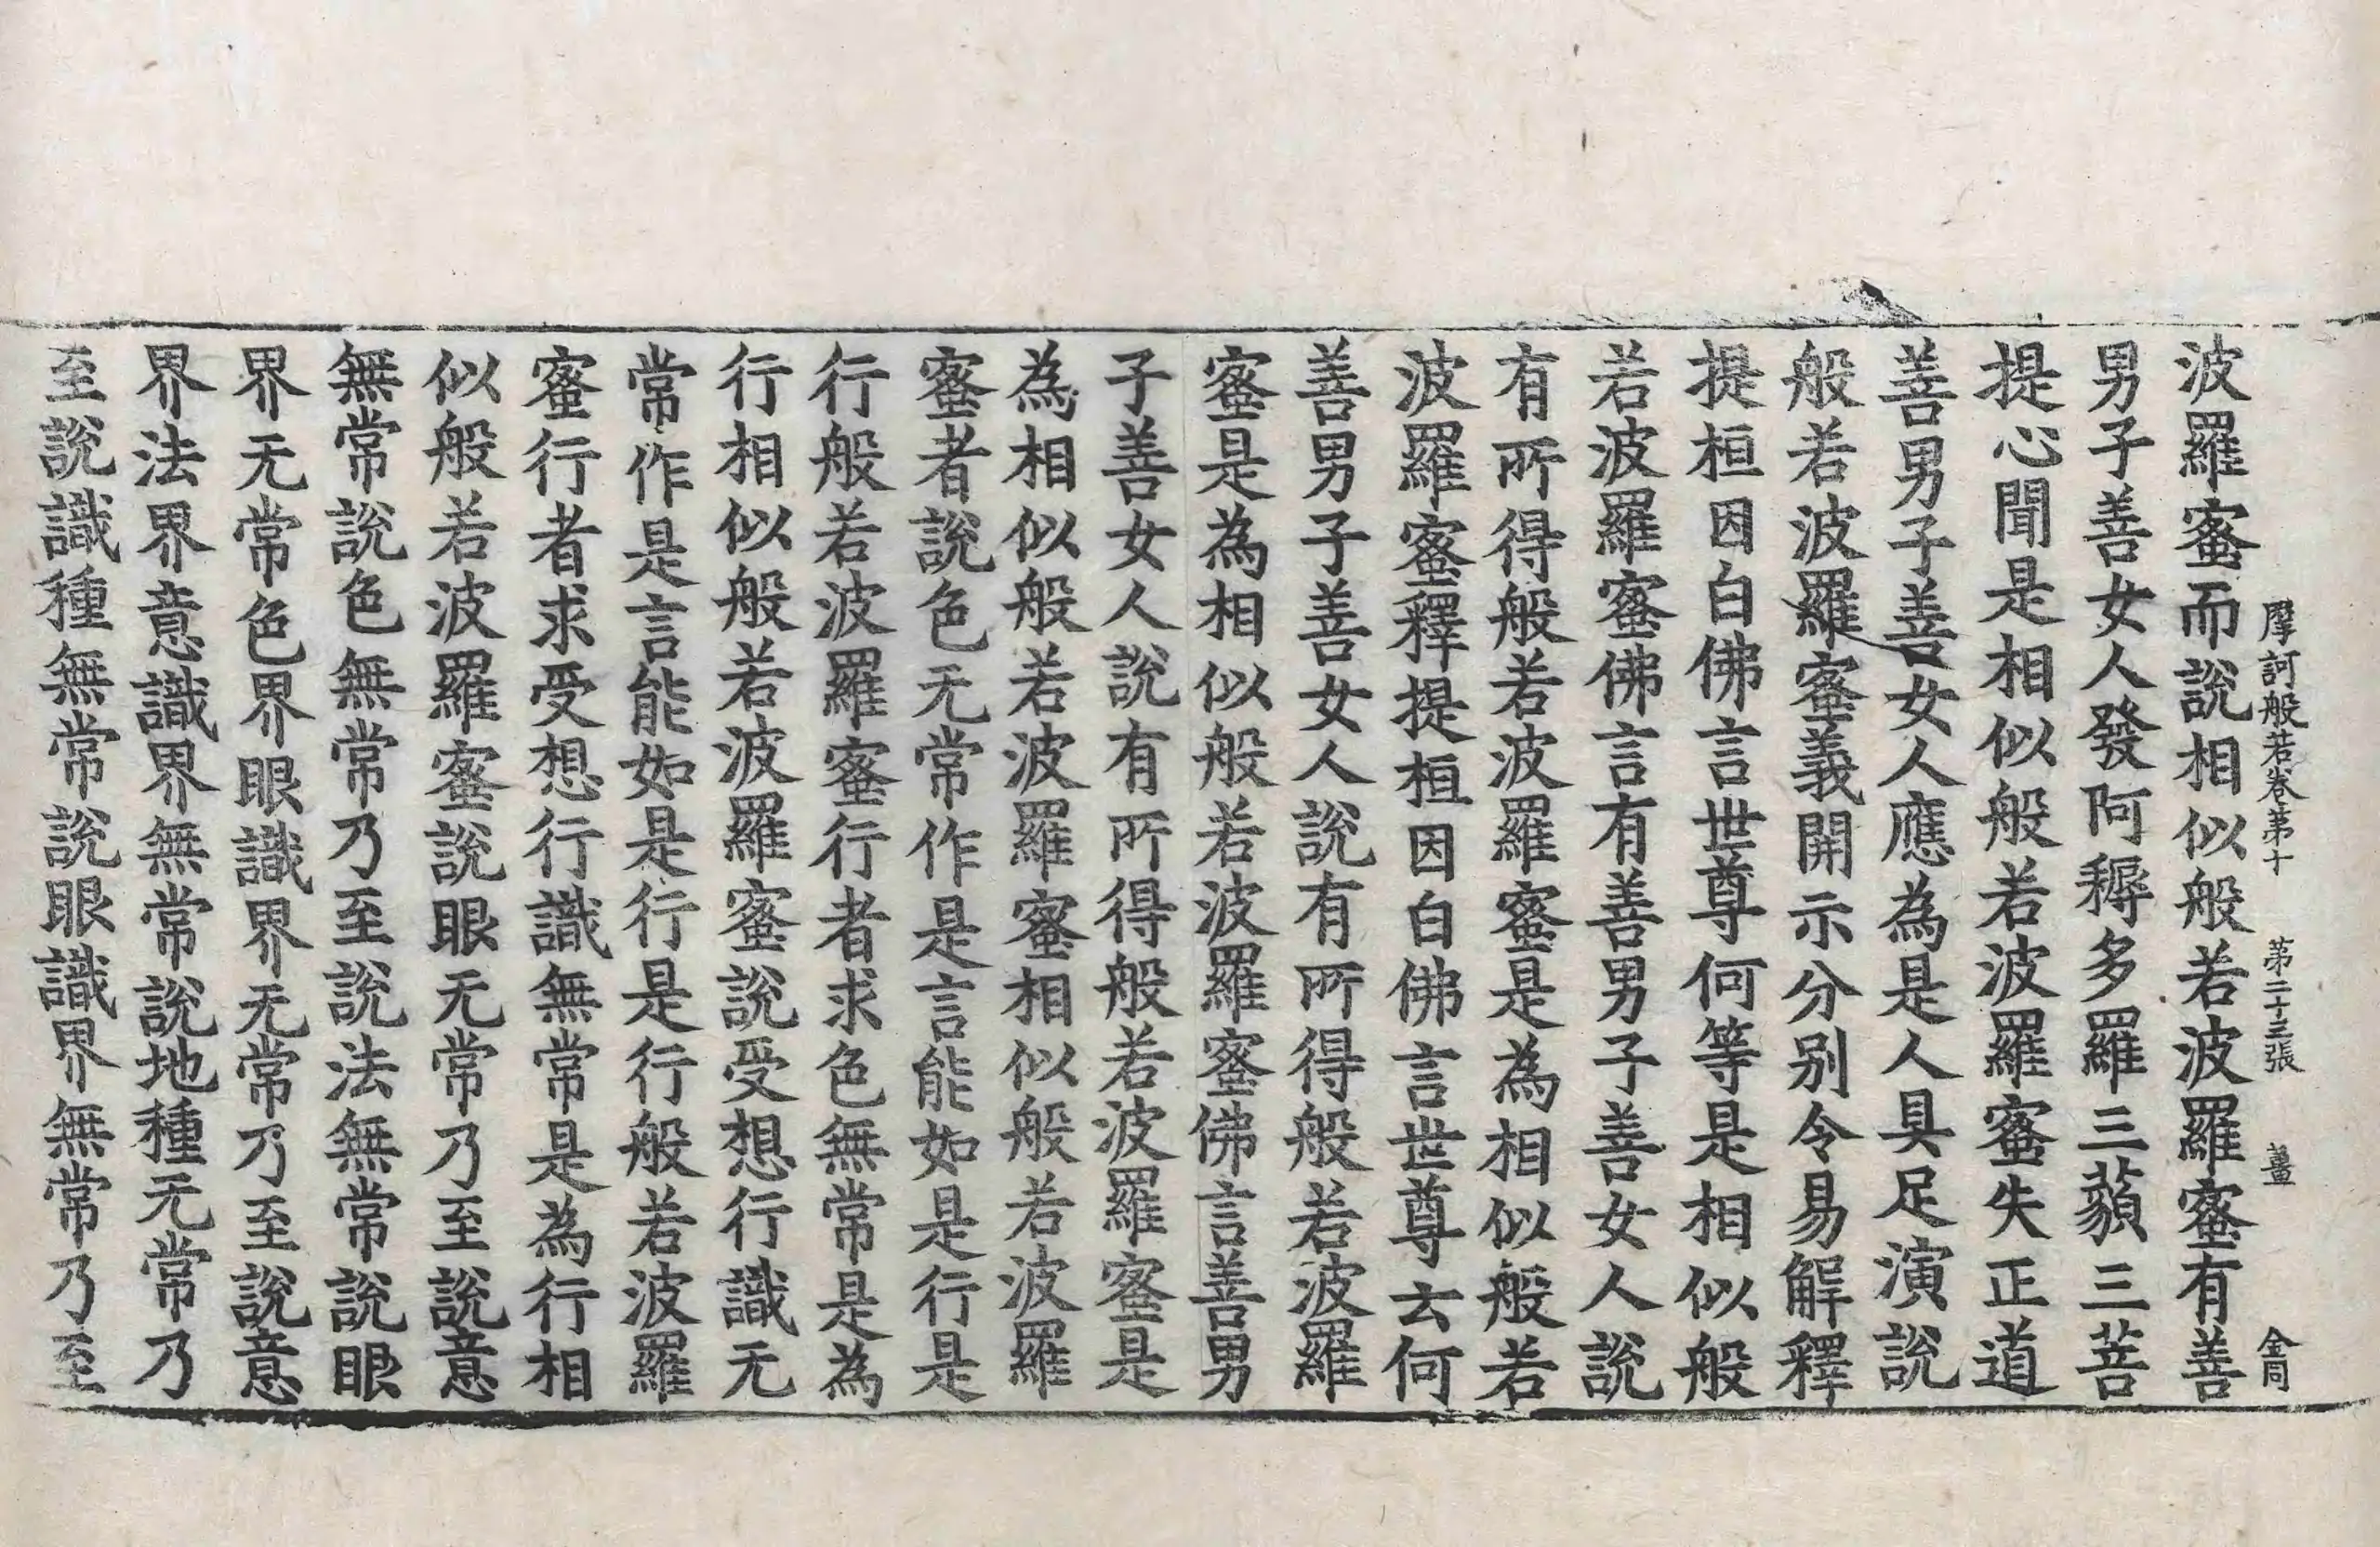 摩訶般若卷第十　第二十三張　薑　金同
波羅蜜而說相似般若波羅蜜有善
男子善女人發阿耨多羅三藐三菩
提心聞是相似般若波羅蜜失正道
善男子善女人應為是人具足演說
般若波羅蜜義開示分别令易解釋
提桓因白佛言世尊何等是相似般
若波羅蜜佛言有善男子善女人說
有所得般若波羅蜜是為相似般若
波羅蜜釋提桓因白佛言世尊云何
善男子善女人說有所得般若波羅
蜜是為相似般若波羅蜜佛言善男
子善女人說有所得般若波羅蜜是
為相似般若波羅蜜相似般若波羅
蜜者說色无常作是言能如是行是
行般若波羅蜜行者求色無常是為
行相似般若波羅蜜說受想行識无
常作是言能如是行是行般若波羅
蜜行者求受想行識無常是為行相
似般若波羅蜜說眼无常乃至說意
無常說色無常乃至說法無常說眼
界无常色界眼識界无常乃至說意
界法界意識界無常說地種无常乃
至說識種無常說眼識界無常乃至